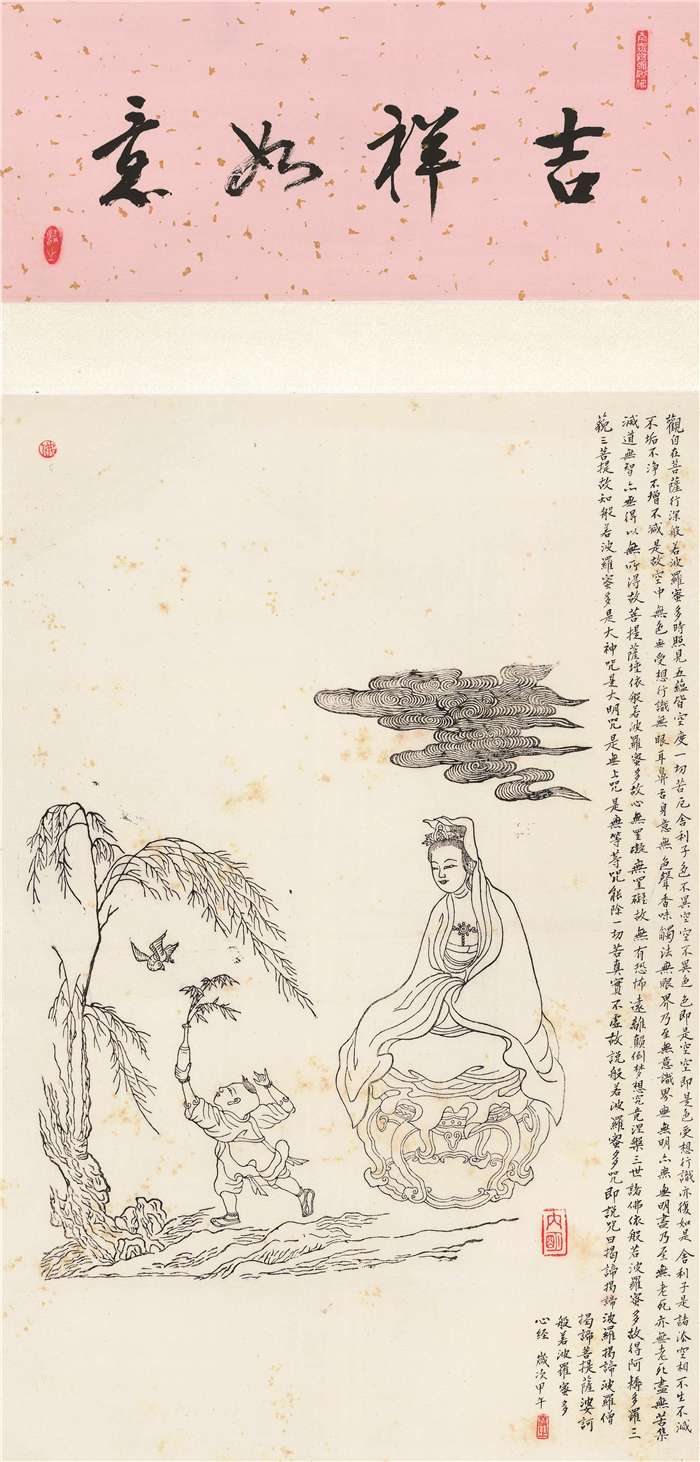 吉祥如意
觀自在菩薩行深般若波羅蜜多時照見五蘊皆空度一切苦厄舍利子色不異空空不異色色即是空空即是色受想行識亦復如是舍利子是諸法空相不生不滅
不垢不淨不增不減是故空中無色無受想行識無眼耳鼻舌身意無色聲香味觸法無眼界乃至無意識界無無明亦無無明盡乃至無老死亦無老死盡無苦集
滅道無智亦無得以無所得故菩提薩埵依般若波羅蜜多故心無罣礙無罣礙故無有恐怖遠離顛倒梦想究竟涅槃三世諸佛依般若波羅蜜多故得阿耨多羅三
藐三菩提故知般若波羅蜜多是大神咒是大明咒是無上咒是無等等咒能除一切苦真實不虛故說般若波羅蜜多咒即說咒曰揭諦揭諦波羅揭諦波羅僧
揭諦菩提薩婆訶
般若波羅蜜多
心経 歲次甲午